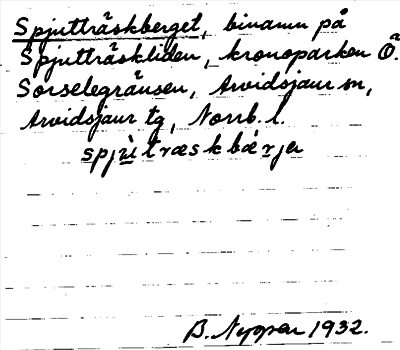 Spjutträskberget, binamn på
Spjutträskliden, kronoparken Ö.
Sorselegränsen, Arvidsjaur sn,
Arvidsjaur tg, Norrb. l.
spjùtræskbærja
B. Nyman 1932.